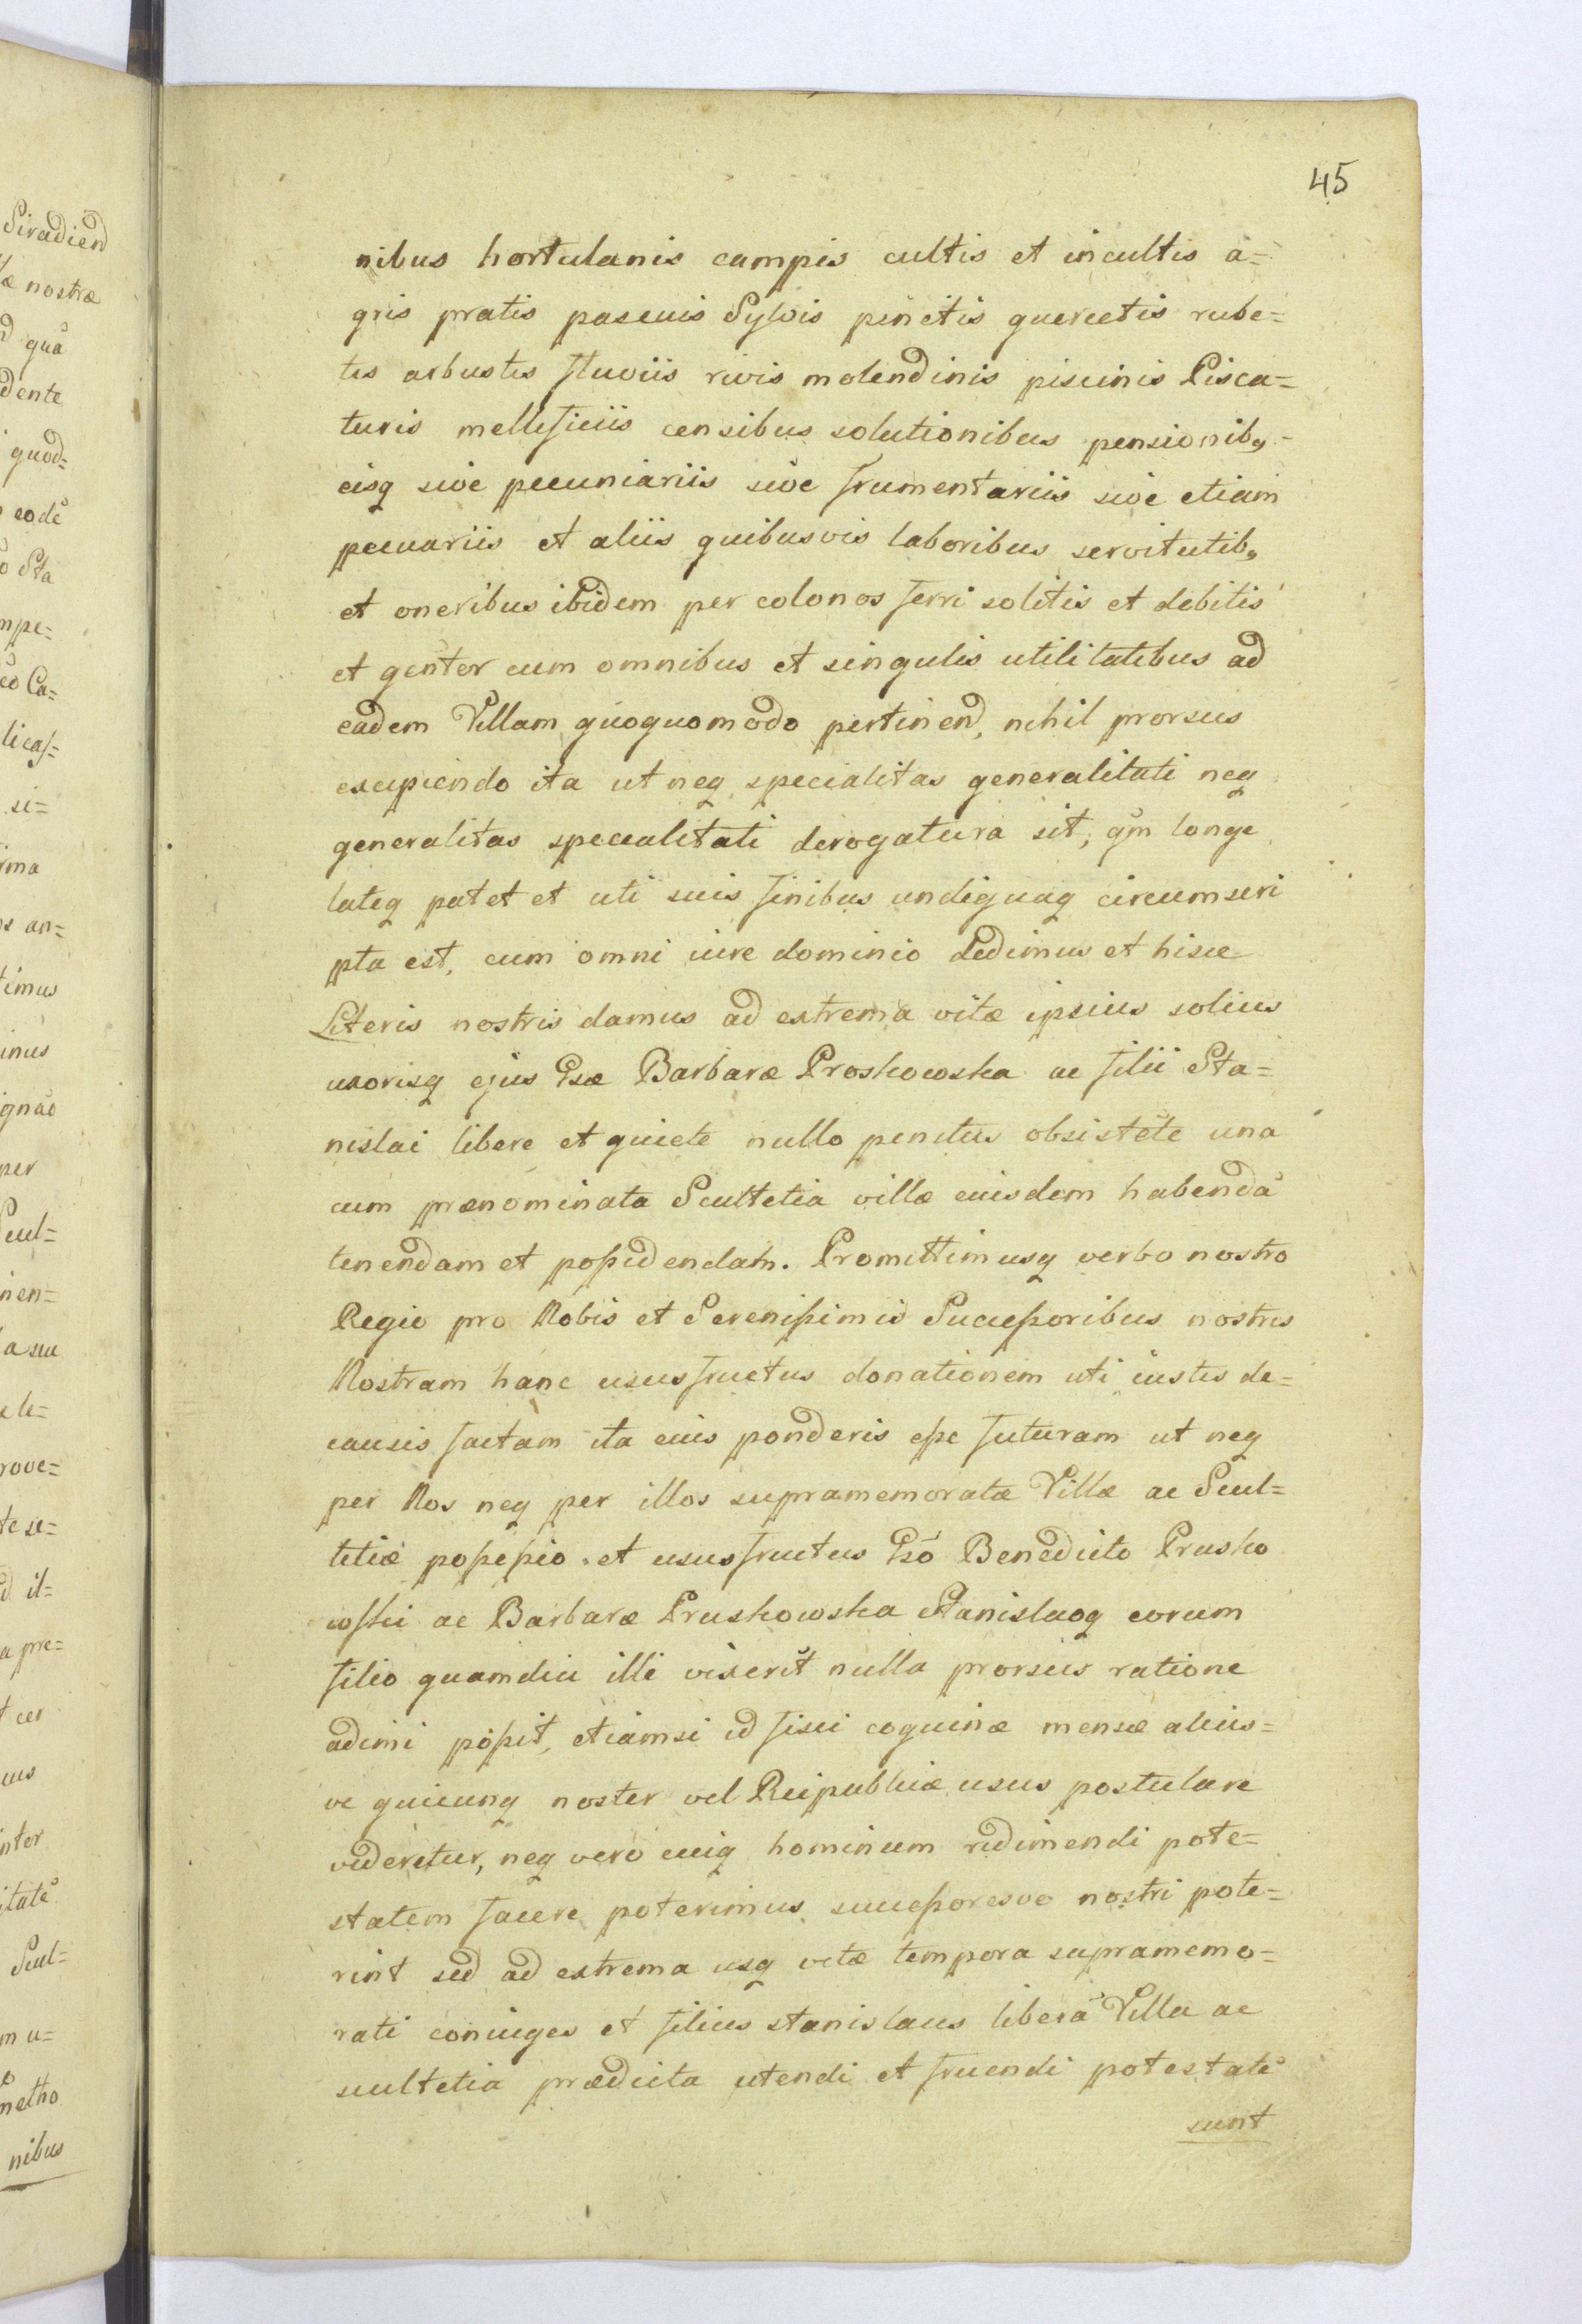 45
nibus hortulanis campis cultis et incultis a=
gris pratis pascuis Sylvis pinetis quercetis rube=
tis arbustis fluviis rivis molendinis piscinis Pisca=
turis mellificiis censibus solutionibus pensionibq
eisq sive pecuniariis sive frumentariis sive etiam
pecuariis et aliis quibusvis laboribus servitutibq
et oneribus ibidem per colonos ferri solitis et debitis
et gentēr cum omnibus et singulis utilitatibus ad
eadem Villam quoquomodo pertinend, nihil prorsus
excipiendo ita ut neq specialitas generalitati neq
generalitas specialitati derogatura sit, qm̃ longe
lateq patet et uti suis finibus undiquaq circumscri
pta est, cum omni iure dominio dedimus et hisce
Literis nostris damus ad extrema vitæ ipsius solius
uxorisq ejus Gsæ Barbaræ Proskowska ac filii Sta=
nislai libere et quiete nullo penitus obsistēte una
cum prænominata Scultetia villæ eiusdem habendā
tenendam et possidendam. Promittimusq verbo nostro
Regio pro Nobis et Serenissimis Successoribus nostris
Nostram hanc ususfructus donationem uti iustis de=
causis factam ita eius ponderis esse futuram ut neq
per Nos neq per illos supramemoratæ Villæ ac Scul=
tetiæ possessio et ususfructus Gsō Benedicto Prusko
wskii ac Barbaræ Pruskowska Stanislaoq eorum
filio quamdiu illi vixerīt nulla prorsus ratione
adimi possit, etiamsi id fisci coquinæ mensæ alius=
ve quicunq noster vel Reipublicæ usus postulare
videretur, neq vero cuiq hominum redimendi pote=
statem facere poterimus successoresve nostri pote=
rint sed ad extrema usq vitæ tempora supramemo=
rati coniuges et filius stanislaus liberā Villa ac
scultetia prædicta utendi et fruendi potestatē
sunt
Siradiend
æ nostræ
quā
dente
quod=
eodē
Sta
mpe=
Ca=
licaſ=
si=
rma
an=
timus
inus
ignāo
per
Scul=
nen=
rove=
il=
pre=
ntor
itatē
Scul=
netho
nibus